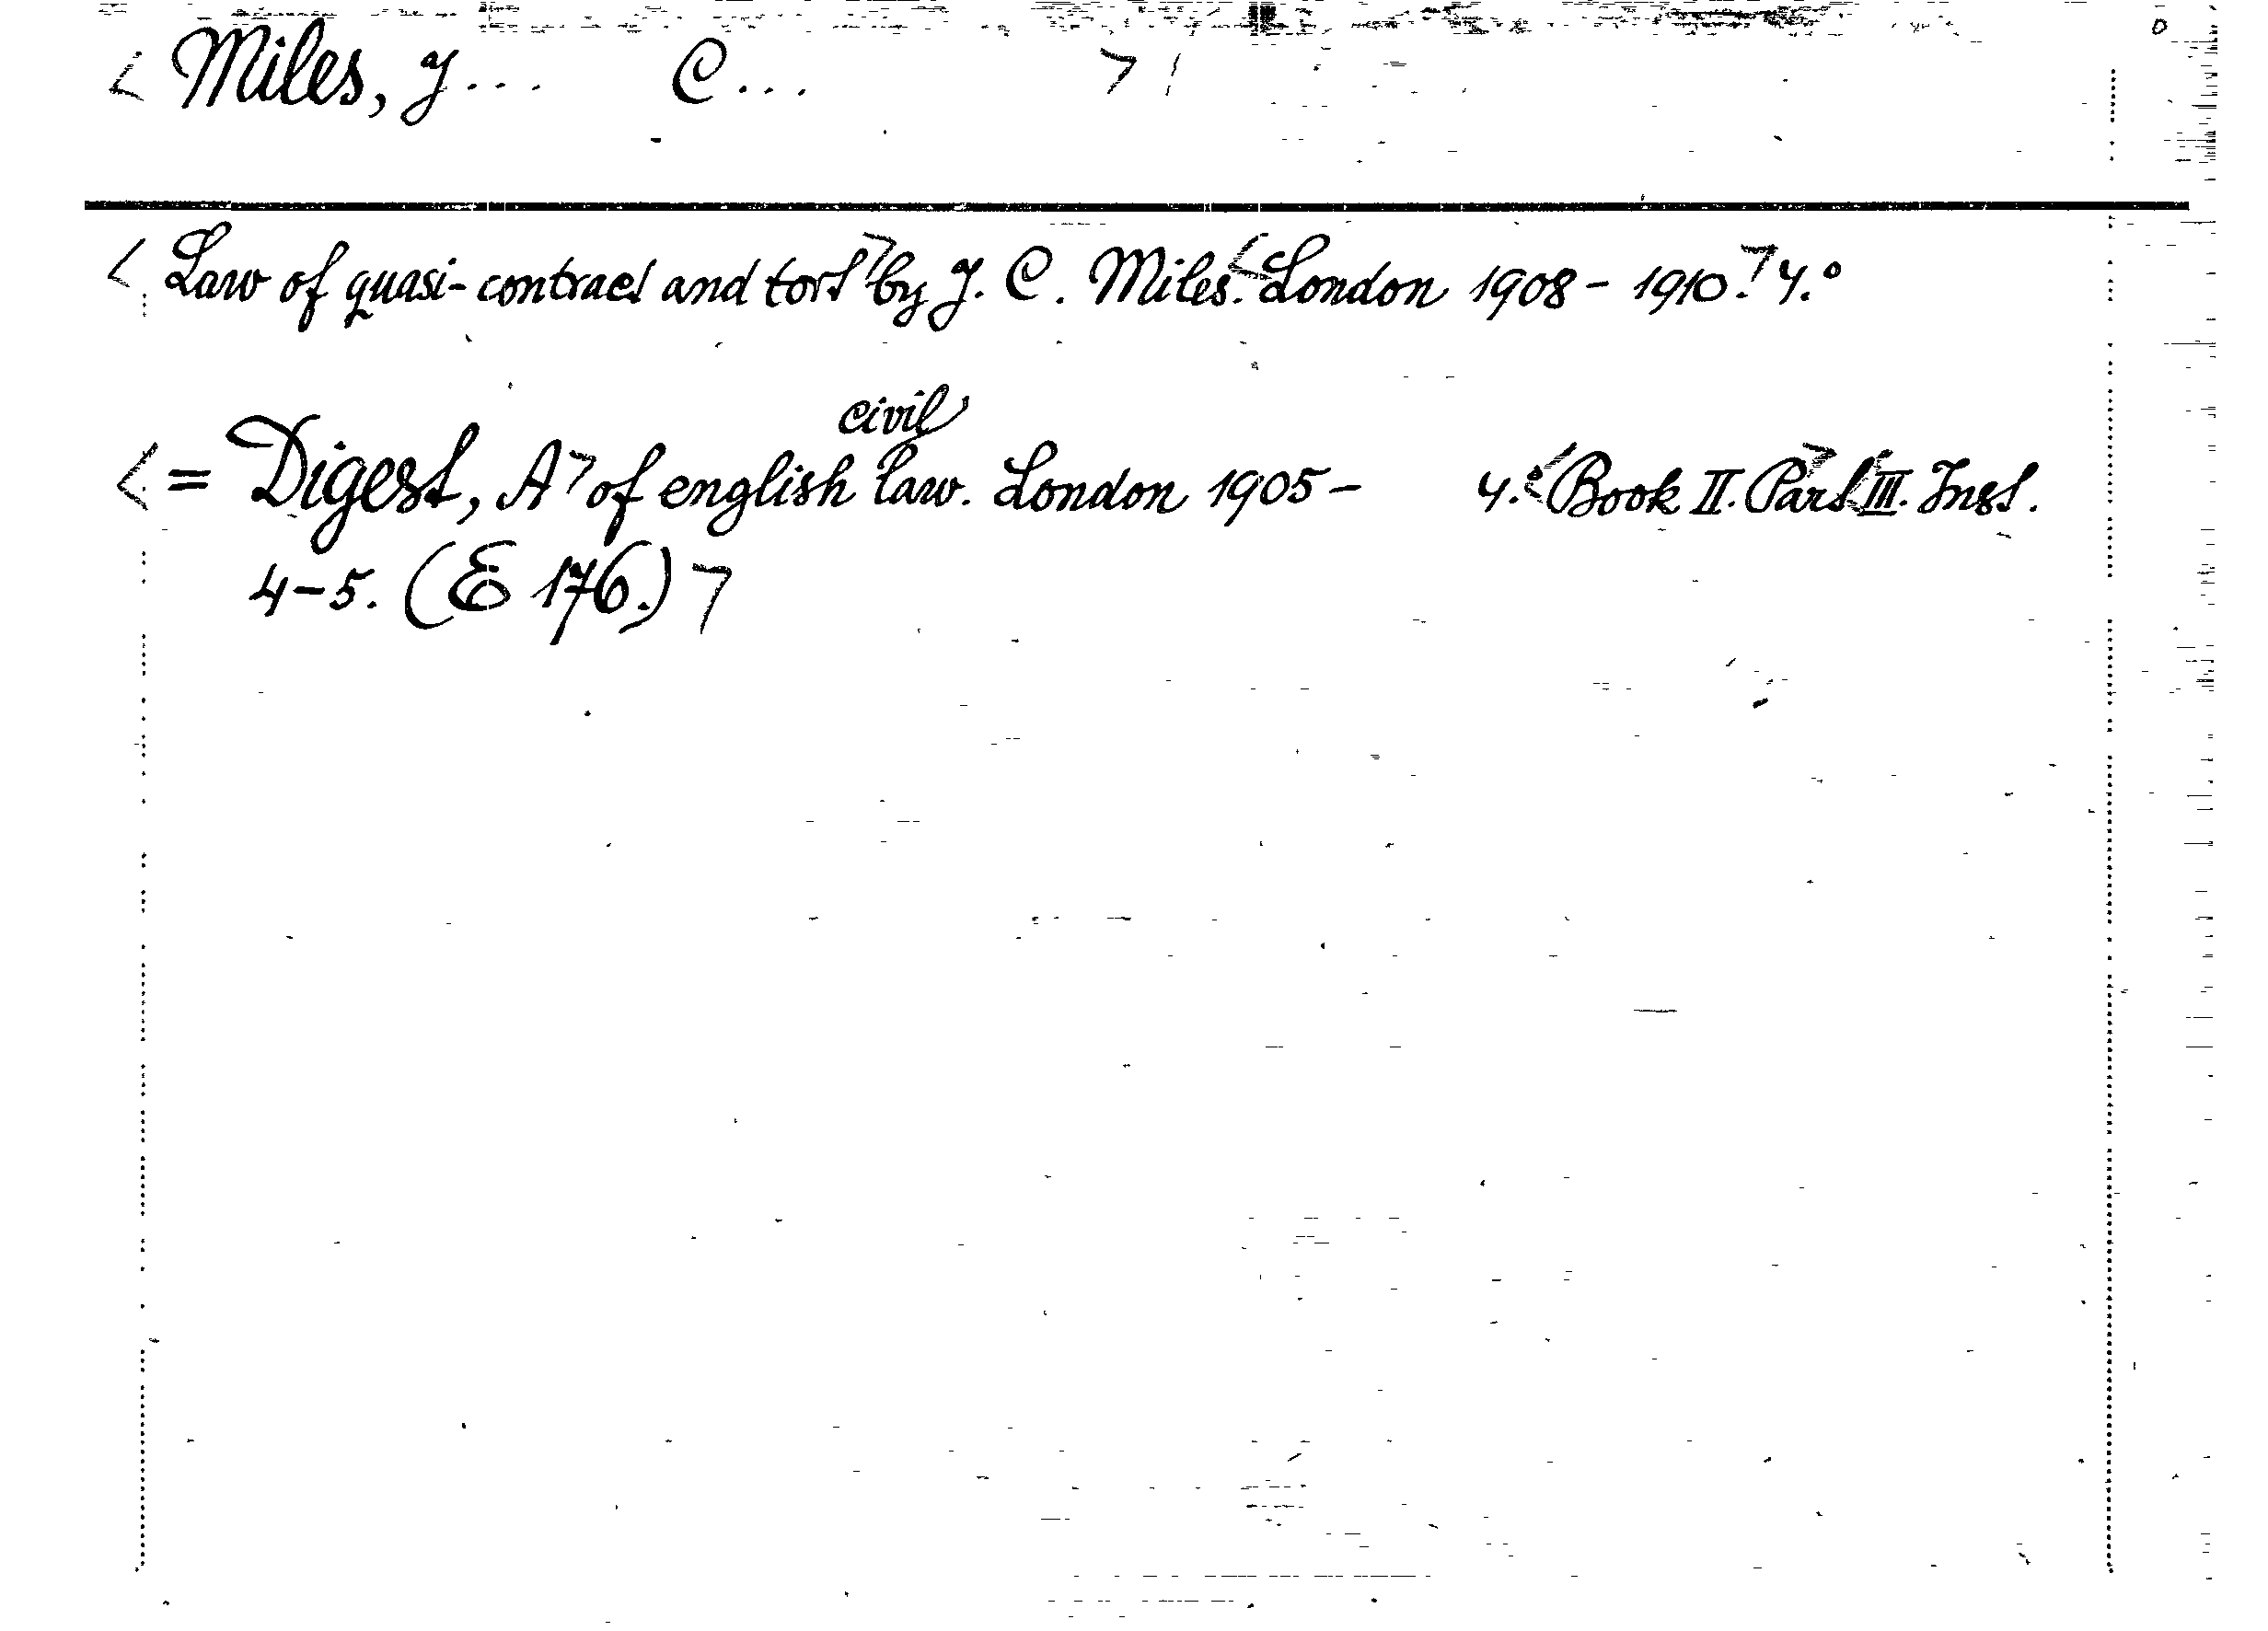 Miles, J... C...
Law of quasi-contract and tort by J. C. Miles. London 1908-1910. 4.°
= Digest, A of english civil law. London 1905- 4.° Book II. Part III. Inst.
4-5. (E 176.)